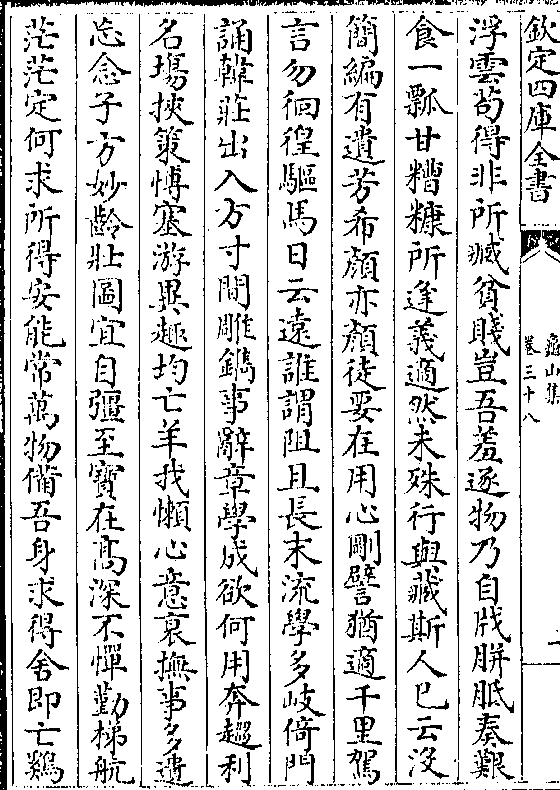 欽定四庫全書
龜山集
卷三十八
浮雲茍得非所臧貧賤豈吾羞逐物乃自戕胼胝奏艱
食一瓢甘糟糠所逢義適然未殊行與藏斯人已云沒
簡編有遺芳希顔亦顔徒要在用心剛譬猶適千里駕
言勿徊徨驅馬日云遠誰謂阻且長末流學多岐倚門
誦韓莊出入方寸間雕鐫事辭章學成欲何用奔趨利
名塲挾筴愽塞游異趣均亡羊我懶心意衰撫事多遺
忘念子方妙齡壯圖宜自彊至寶在髙深不憚勤梯航
茫茫定何求所得安能常萬物備吾身求得舍即亡鷄